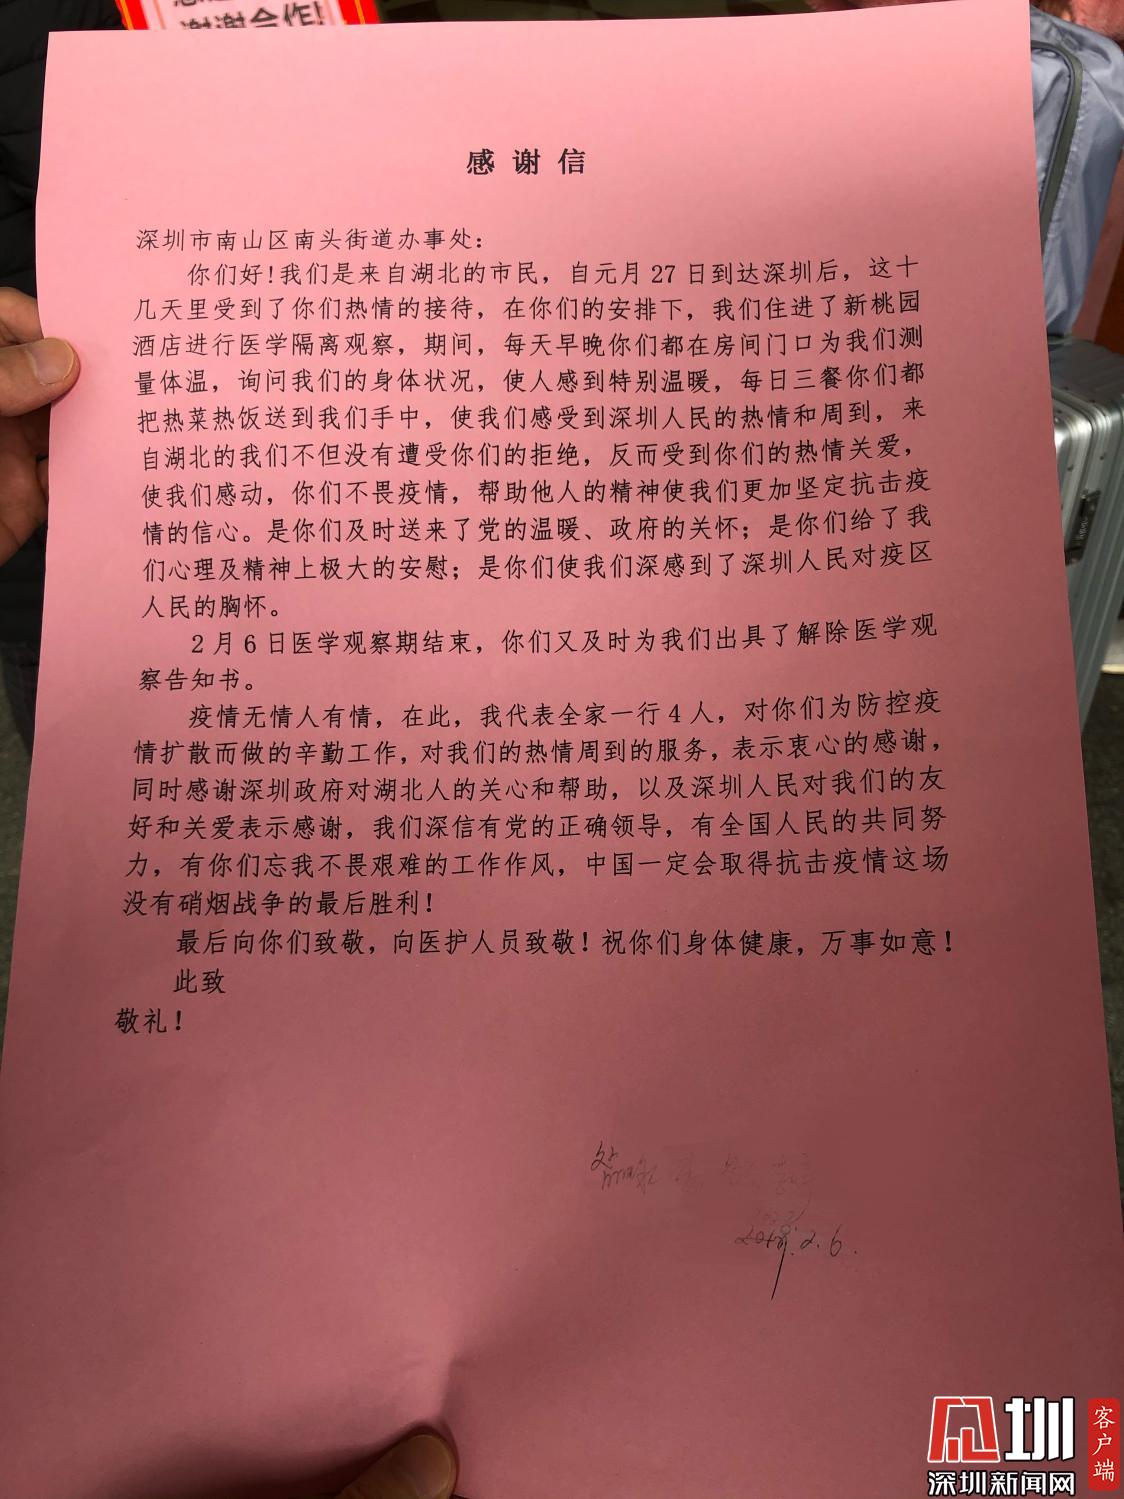 谢谢合作!
感谢信
深圳市南山区南头街道办事处：
你们好！我们是来自湖北的市民，自元月 27 日到达深圳后，这十
几天里受到了你们热情的接待，在你们的安排下，我们住进了新桃园
酒店进行医学隔离观察，期间，每天早晚你们都在房间门口为我们测
量体温，询问我们的身体状况，使人感到特别温暖，每日三餐你们都
把热菜热饭送到我们手中，使我们感受到深圳人民的热情和周到，来
自湖北的我们不但没有遭受你们的拒绝，反而受到你们的热情关爱，
使我们感动，你们不畏疫情，帮助他人的精神使我们更加坚定抗击疫
情的信心。是你们及时送来了党的温暖、政府的关怀；是你们给了我
们心理及精神上极大的安慰；是你们使我们深感到了深圳人民对疫区
人民的胸怀。
2 月 6 日医学观察期结束，你们又及时为我们出具了解除医学观
察告知书。
疫情无情人有情，在此，我代表全家一行 4 人，对你们为防控疫
情扩散而做的辛勤工作，对我们的热情周到的服务，表示衷心的感谢，
同时感谢深圳政府对湖北人的关心和帮助，以及深圳人民对我们的友
好和关爱表示感谢，我们深信有党的正确领导，有全国人民的共同努
力，有你们忘我不畏艰难的工作作风，中国一定会取得抗击疫情这场
没有硝烟战争的最后胜利！
最后向你们致敬，向医护人员致敬！祝你们身体健康，万事如意！
此致
敬礼！
2.6.
深圳
客户端
深圳新闻网